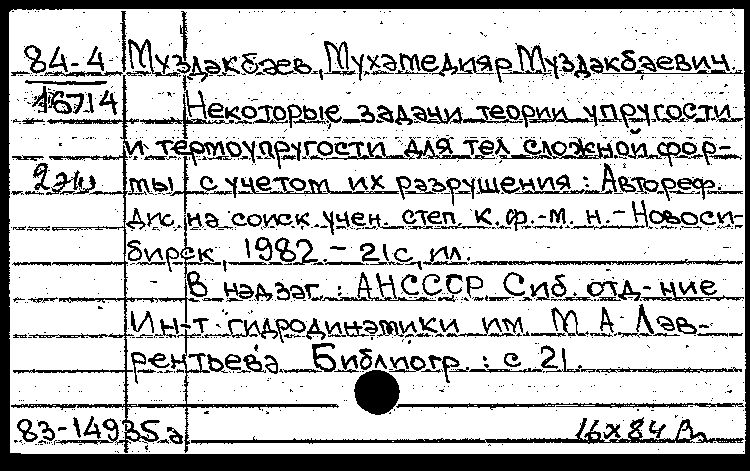 84-4 Муздакбаев, Мухамедияр Муздакбаевич.
16714 Некоторые задачи теории упругости
и термоупругости для тел сложной фор-
2 экз мы с учетом их разрушения : Автореф.
дис. на соиск. учен. степ. к. ф.-м. н. - Новоси-
бирск, 1982. - 21 с, ил.
В надзаг. : АН СССР, Сиб. отд-ние
Ин-т гидродинамики им. М. А. Лав-
рентьева Библиогр. : с. 21.
83-14935а 16х84